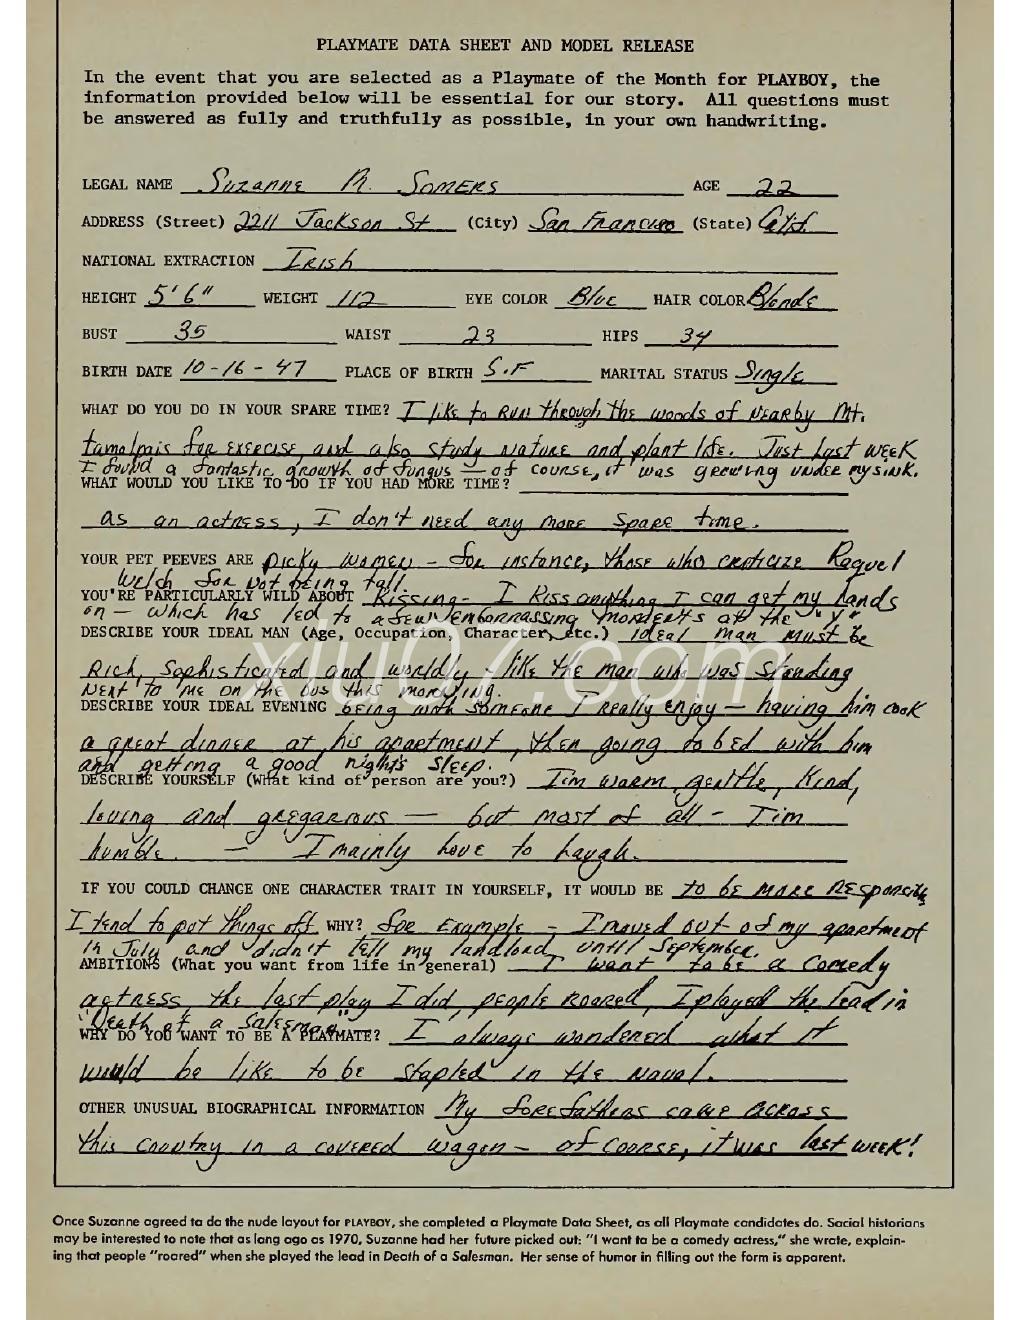 PLAYMATE DATA SHEET AND MODEL RELEASE
In the event that you are selected as a Playmate of the Month for PLAYBOY, the
information provided below will be essential for our story. All questions must
be answered as fully and truthfully as possible, in your own handwriting.
LEGAL NAME Suzanne M. Somers AGE 22
ADDRESS (Street) 2211 Jackson St (City) San Francisco (State) Calif.
NATIONAL EXTRACTION Irish
HEIGHT 5'6" WEIGHT 112 EYE COLOR Blue HAIR COLOR Blonde
BUST 35 WAIST 23 HIPS 34
BIRTH DATE 10-16-47 PLACE OF BIRTH S.F MARITAL STATUS Single
WHAT DO YOU DO IN YOUR SPARE TIME? I like to run through the woods of nearby Mt.
tamalpais for exercise, and also study nature and plant life. Just last week
I found a fantastic growth of fungus – of course, it was growing under my sink.
WHAT WOULD YOU LIKE TO DO IF YOU HAD MORE TIME?
as an actress, I don't need any more spare time.
YOUR PET PEEVES ARE picky women – for instance, those who criticize Raquel
Welch for not being tall.
YOU'RE PARTICULARLY WILD ABOUT Kissing – I kiss anything I can get my hands
on – which has led to a few embarrassing moments at the "Y"
DESCRIBE YOUR IDEAL MAN (Age, Occupation, Character, etc.) ideal man must be
Rich, Sophisticated and worldly – like the man who was standing
next to me on the bus this morning.
DESCRIBE YOUR IDEAL EVENING being with someone I really enjoy – having him cook
a great dinner at his apartment, then going to bed with him
and getting a good night's sleep.
DESCRIBE YOURSELF (What kind of person are you?) I'm warm, gentle, kind,
loving and gregarious – but most of all – I'm
humble. – I mainly love to laugh.
IF YOU COULD CHANGE ONE CHARACTER TRAIT IN YOURSELF, IT WOULD BE to be more responsible
I tend to put things off. WHY? for example – I moved out of my apartment
in July and didn't tell my landlord until September.
AMBITIONS (What you want from life in general) I want to be a comedy
actress, the last play I did, people roared, I played the lead in
"Death of a Salesman"
WHY DO YOU WANT TO BE A PLAYMATE? I always wondered what it
would be like to be stapled in the navel.
OTHER UNUSUAL BIOGRAPHICAL INFORMATION My forefathers came across
this country in a covered wagon – of course, it was last week!
xiu07.com
Once Suzanne agreed to do the nude layout for PLAYBOY, she completed a Playmate Data Sheet, as all Playmate candidates do. Social historians
may be interested to note that as long ago as 1970, Suzanne had her future picked out: "I want to be a comedy actress," she wrote, explain-
ing that people "roared" when she played the lead in Death of a Salesman. Her sense of humor in filling out the form is apparent.